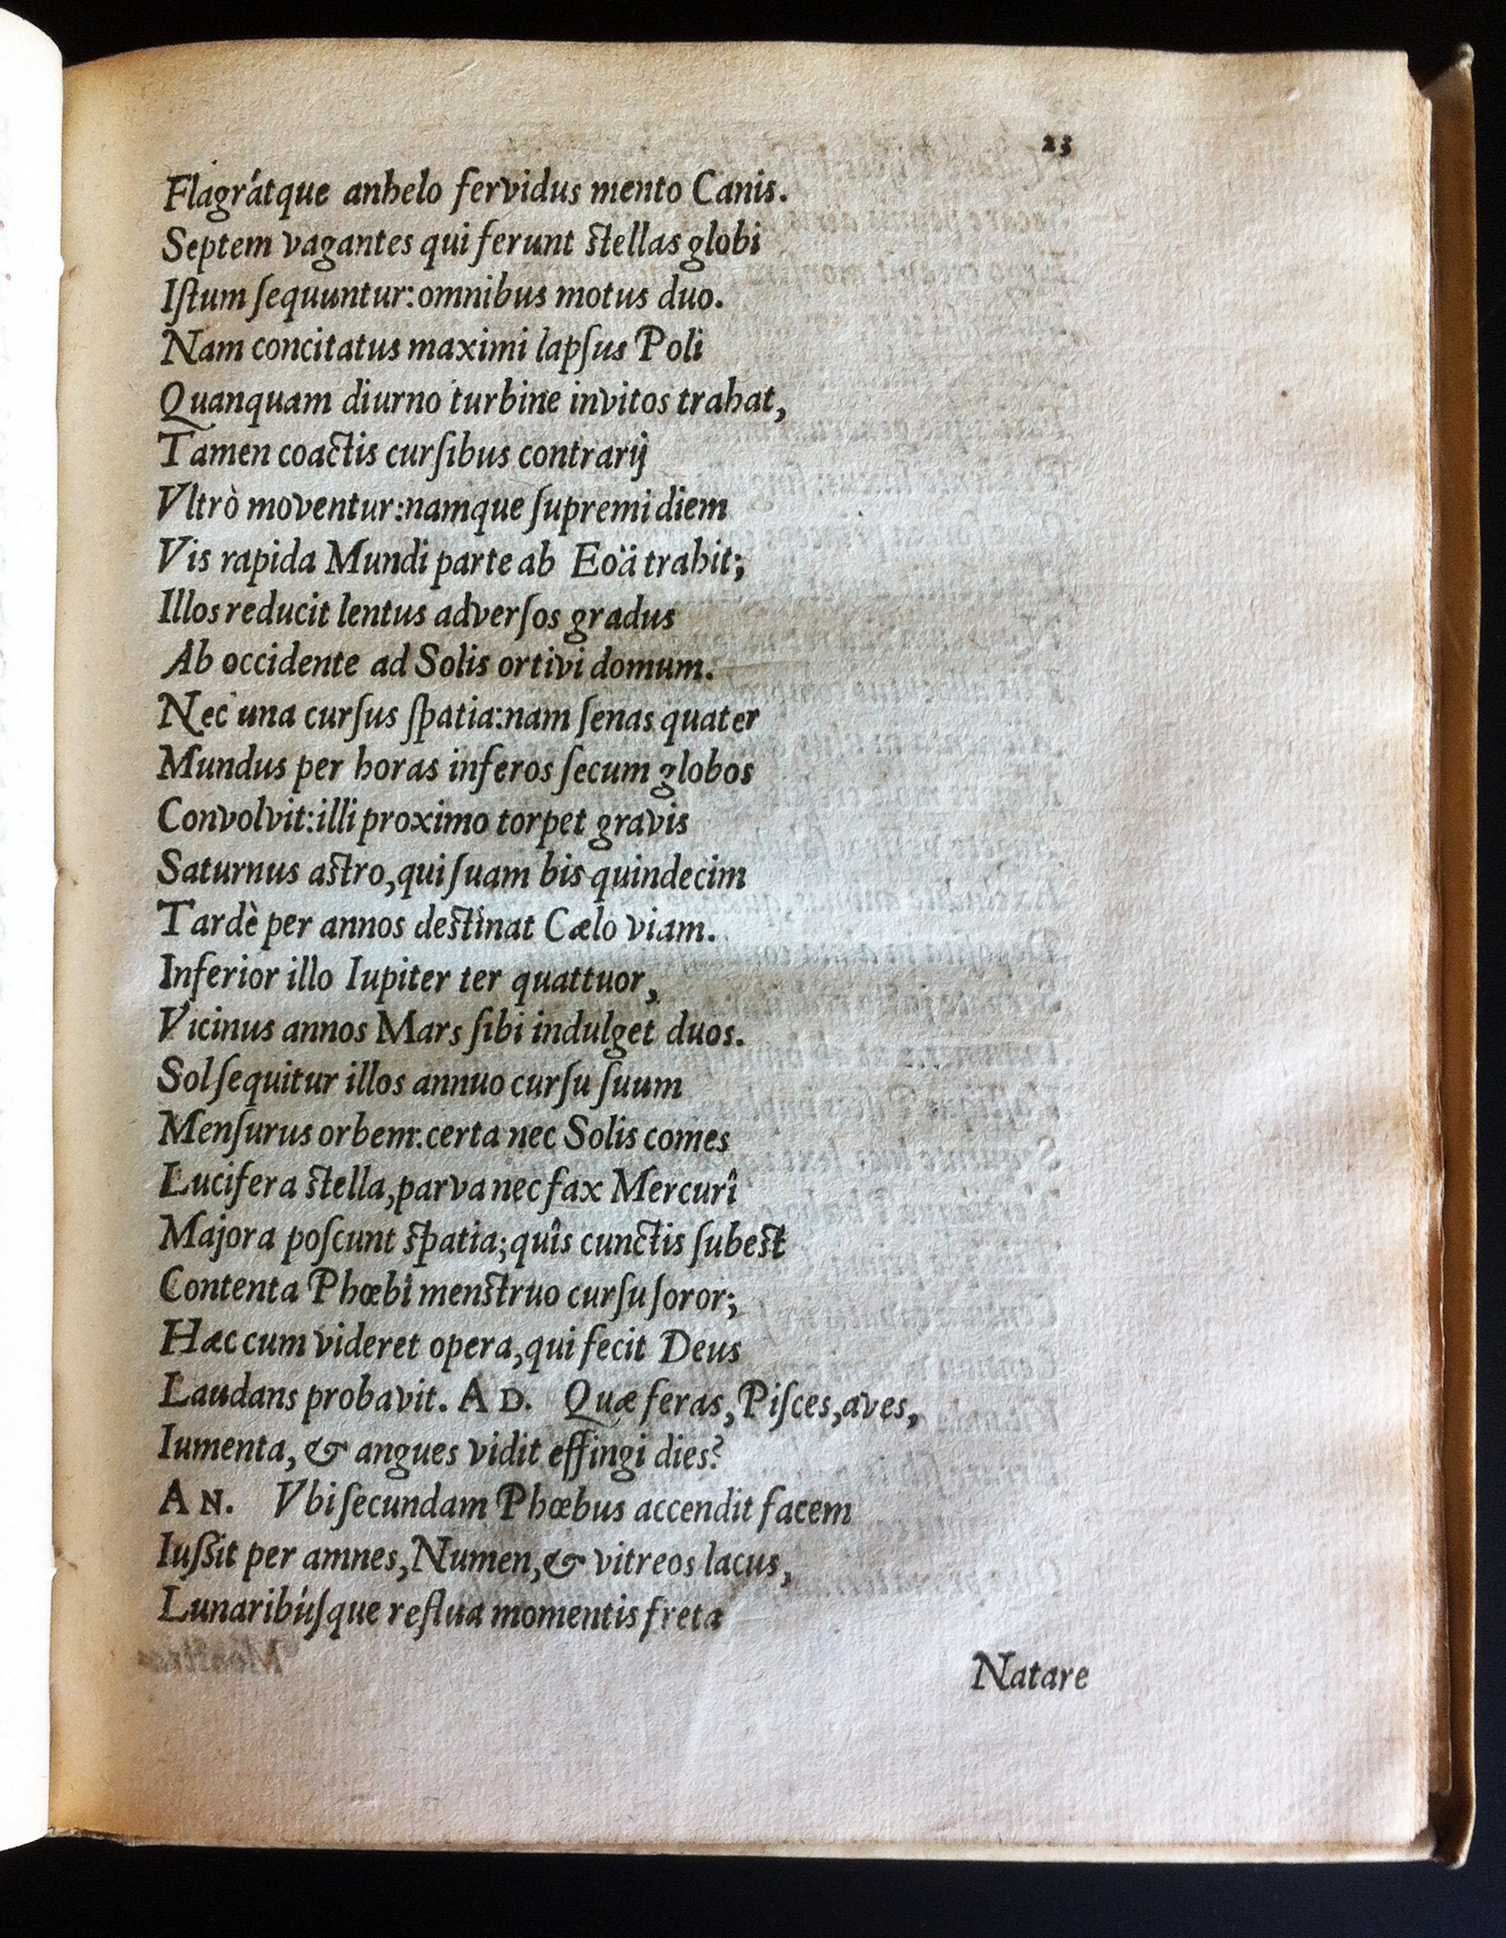 23
Flagrátque anhelo fervidus mento Canis.
Septem vagantes qui ferunt ſtellas globi
Iſtum ſequuntur: omnibus motus duo.
Nam concitatus maximi lapſus Poli
Quanquam diurno turbine invitos trahat,
Tamen coactis curſibus contrarij
Vltrò moventur: namque ſupremi diem
Vis rapida Mundi parte ab Eoä trahit;
Illos reducit lentus adverſos gradus
Ab occidente ad Solis ortivi domum.
Nec una curſus ſpatia: nam ſenas quater
Mundus per horas inferos ſecum globos
Convolvit: illi proximo torpet gravis
Saturnus aſtro, qui ſuam bis quindecim
Tardè per annos deſtinat Cælo viam.
Inferior illo Iupiter ter quattuor,
Vicinus annos Mars ſibi indulget duos.
Sol ſequitur illos annuo curſu ſuum
Menſurus orbem: certa nec Solis comes
Lucifera ſtella, parva nec fax Mercurî
Majora poſcunt ſpatia; quîs cunctis ſubeſt
Contenta Phœbi menſtruo curſu ſoror;
Hæc cum videret opera, qui fecit Deus
Laudans probavit. AD. Quæ feras, Piſces, aves,
Iumenta, & angues vidit effingi dies?
AN. Vbi ſecundam Phœbus accendit facem
Iuſſit per amnes, Numen, & vitreos lacus,
Lunaribúſque reflua momentis freta
Natare